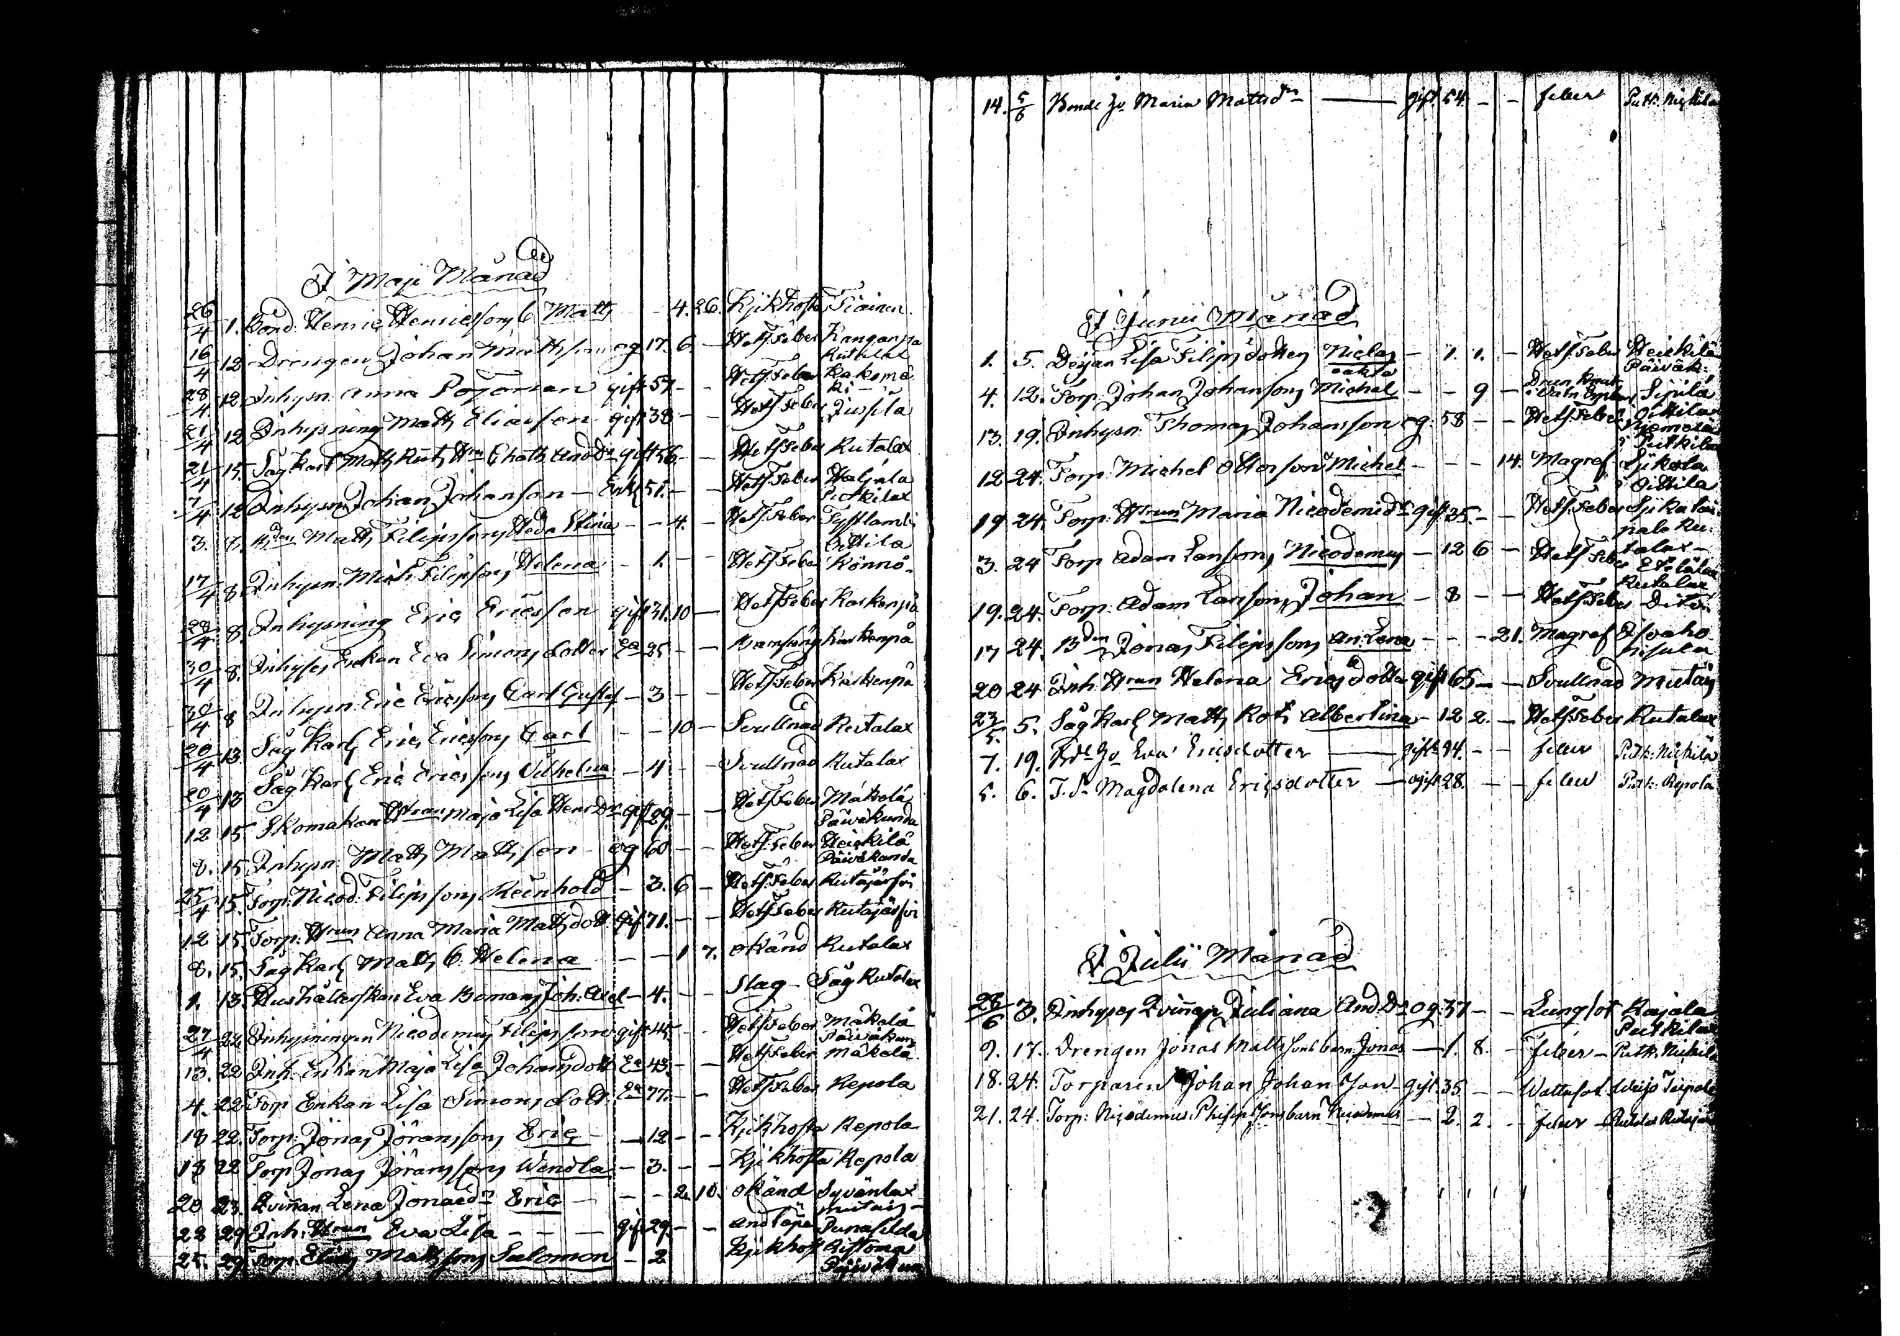 I Maji Månad
26/4 1. Bond. Henric Henricsons C. Matts - 4. 26. Kjikhosta Tiainen
16/4 12 Drengen Johan Mattsson og 17. 6. - Hets. Feber Kangaspä
Rutalax
28/4 12 Inhysn Anna Pojonen gift 57 - - Hets. Feber Kakomä
ki
21/4 12 Inhysning Matts Eliasson gift 38 - - Hets. Feber Jussila
21/4 15. Såg Karl Matts And Dr gift 56 - - Hets. Feber Rutalax
7/4 12 Inhysn Johan Johanson - Enkl 51. - - Hets. Feber Haljala
Putkilax
3. 8. Matts Filipssons Heda Stina - - 4. - Hets. Feber
Oittila
17/4 8. Inhysn. Mich. Filipssons Helena - 1. - - Hets. Feber Könnö
28/4 8. Inhysning Eric Ericsson gift 31. 10 - Hets. Feber Kaskenpä
30/4 8. Inhyses Enkan Eva Simons dotter Ea 25 - - Barnsäng Kaskenpä
30/4 8 Inhysn. Eric Ericssons Carl Gustaf - 3 - - Hets. Feber Kaskenpä
20/4 13 Såg Karls Eric Ericssons Carl - - 10 - Svullnad Rutalax
20/4 13 Såg Karls Eric Ericssons Vilhelmina - 4 - - Svullnad Rutalax
12 15 Skomakare Hstrun Maja Lisa Henr Dr gift 29. - - Hets. Feber Mäkelä
Päiväkunda
8. 15. Inhysn. Matts Mattsson - og 60 - - Hets. Feber Heickilä
Päiväkunda
25/4 15. Torp. Nicod. Filipssons Reinhold - 3. 6 - Hets. Feber Rutajärfvi
12 15 Torp. Hstrun Anna Maria Matts dott. gift 71. - - Hets. Feber Rutajärfvi
8. 15. Såg Karls Matts C. Helena - - 1 7. Okänd Rutalax
1. 13. Hushållerskan Eva Bomans Joh. Axel - 4. - - Slag - Såg Rutalax
27/4 22 Inhysningen Nicodemus Filipsson gift 45 - - Hets. Feber Mäkelä
Päiväkun
13. 22 Inh. Enkan Maja Lisa Johans dott Ea 43. - - Hets. Feber Mäkelä
4. 22 Torp Enkan Lisa Simons dott. Ea 77. - - Hets. Feber Repola
18 22. Torp. Jonas Jöranssons Eric - 12 - - Kjikhosta Repola
18 22 Torp Jonas Jöranssons Wendla - 3. - - Kjikhosta Repola
20 23. Qvinnan Lena Jonae Dr Eric - - 2. 10. Okänd Syvänlax
22 29 Inh. Hstrun Eva Lisa - - - gift 29. - - Andtäpa
25. 29 Torp. Elias Mattssons Salomon - 2 Kjikhost
Päiväkun
14. 5/6 Bonde Ju Maria Mattsdr gift 54. - - feber Putk. Nickilä
I Junii Månad
1. 5. Deyan Lisa Filips dotters Niclas - 1. 1. - Hets. Feber Heickilä
oäkta Päiväk:
4. 12. Torp. Johan Johansons Michel - - 9 - Sipilä
Oittila
13. 19. Inhysn. Thomas Johansson og. 58 - - Hets. Feber Niemelä
i Putkilax
12 24. Torp. Michel Ottersons Michel - - - 14. Magref
i Oittila
19 24. Torp. Hstrun Maria Nicodemi dr gift 35 - - Hets. Feber
Rutalax
3. 24 Torp Adam Larssons Nicodemus - 12 6 - Hets. Feber Etelälax
Rutalax
19. 24. Torp. Adam Larssons Johan - 8 - - Hets. Feber Dito
17 24. Bden Jonas Filipssons An. Lena - - - 21. Magref
20 24 Inh. Hstrun Helena Erics dotter gift 65 - - Svullnad
23/5 5. Såg Karls Matts Albertina - 12 2. - Hets. Feber Rutalax
7. 19. Bde Ju Eva Ericsdotter gift 94. - - feber Putk. Nickilä
5. 6. Magdalena Ericsdotter ogift 28. - - feber Putk. Repola
I Julii Månad
28/6 3. Inhyses Qvinnan Juliana And Dr og 37 - - Lungsot Rajala
Putkilax
9. 17. Drengen Jonas Mattssons barn Jonas - 1. 8. - feber - Putk. Nickilä
18. 24. Torparen Johan Johansson - gift 35 - - Wattusot
21. 24. Torp: Nicodemus Philipssons barn Nicodemus - 2. 2. - feber